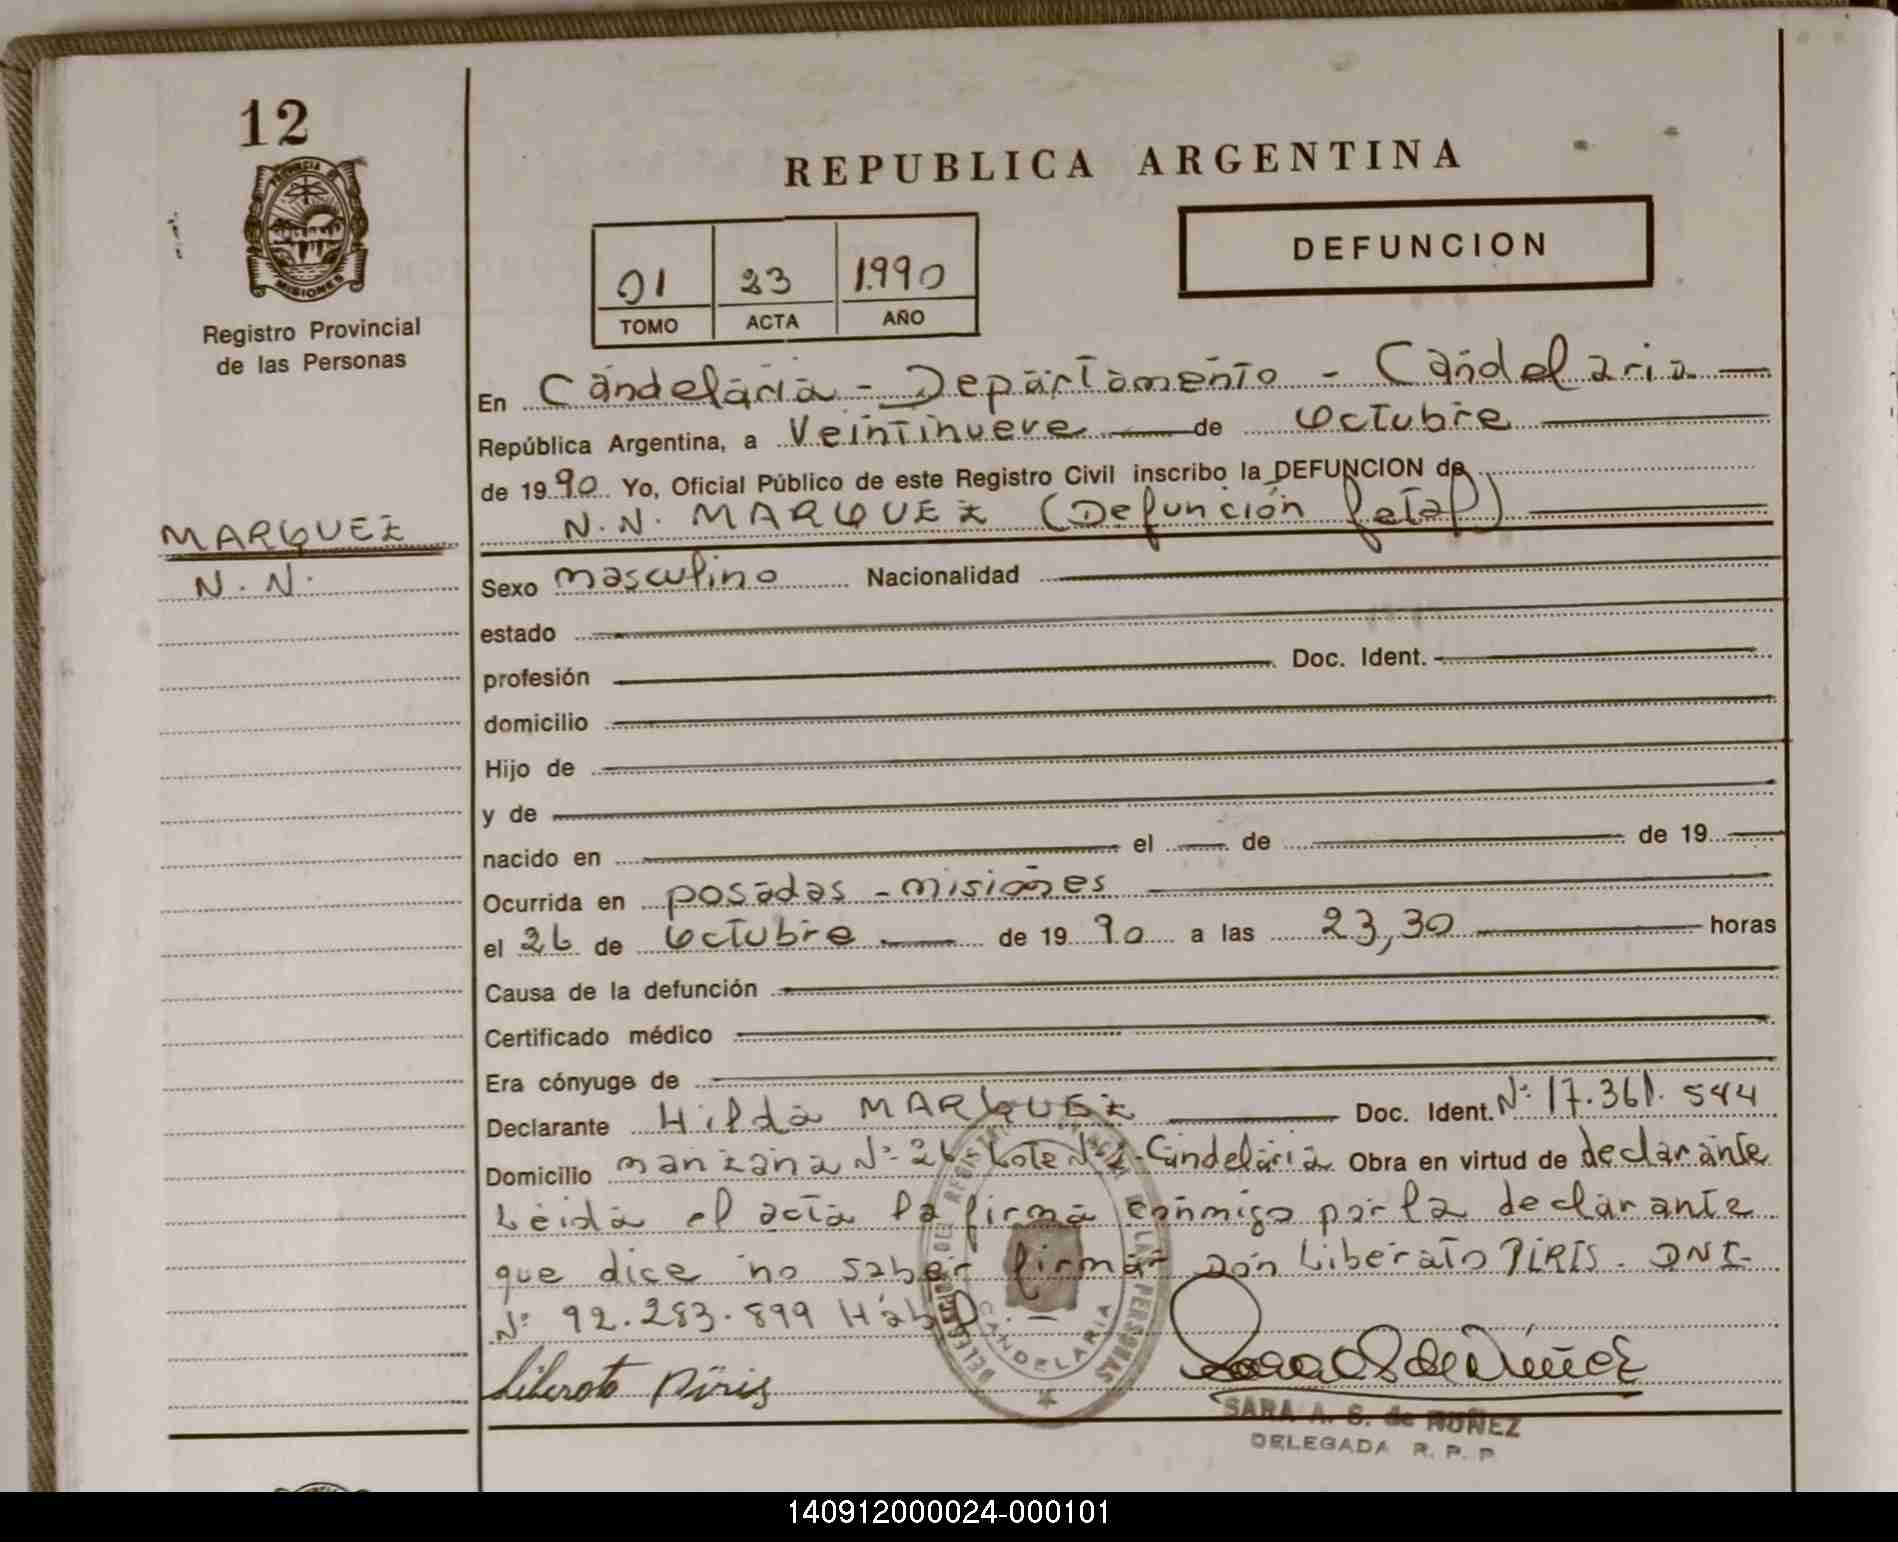 12
PROVINCIA DE
MISIONES
Registro Provincial
de las Personas
REPUBLICA ARGENTINA
01 23 1.990
TOMO ACTA AÑO
DEFUNCION
En Candelaria - Departamento - Candelaria
República Argentina, a Veintinueve de Octubre
de 1990 Yo, Oficial Público de este Registro Civil inscribo la DEFUNCION de
N.N. MARQUEZ (Defunción fetal)
MARQUEZ
N. N.
Sexo masculino Nacionalidad
estado
profesión Doc. Ident.
domicilio
Hijo de
y de
nacido en el de de 19
Ocurrida en posadas - misiones
el 26 de Octubre de 19 90 a las 23,30 horas
Causa de la defunción
Certificado médico
Era cónyuge de
Declarante Hilda MARQUEZ Doc. Ident. Nº 17.361.544
Domicilio manzana Nº 26 Lote Nº - Candelaria Obra en virtud de declarante
Leida el acta la firma conmigo por la declarante
que dice no saber firmar Don Liberato PIRIS. DNI.
Nº 92.283.899 Hábil
Liberato Piris
CANDELARIA
SARA A. S. de NUÑEZ
DELEGADA R. P. P
140912000024-000101